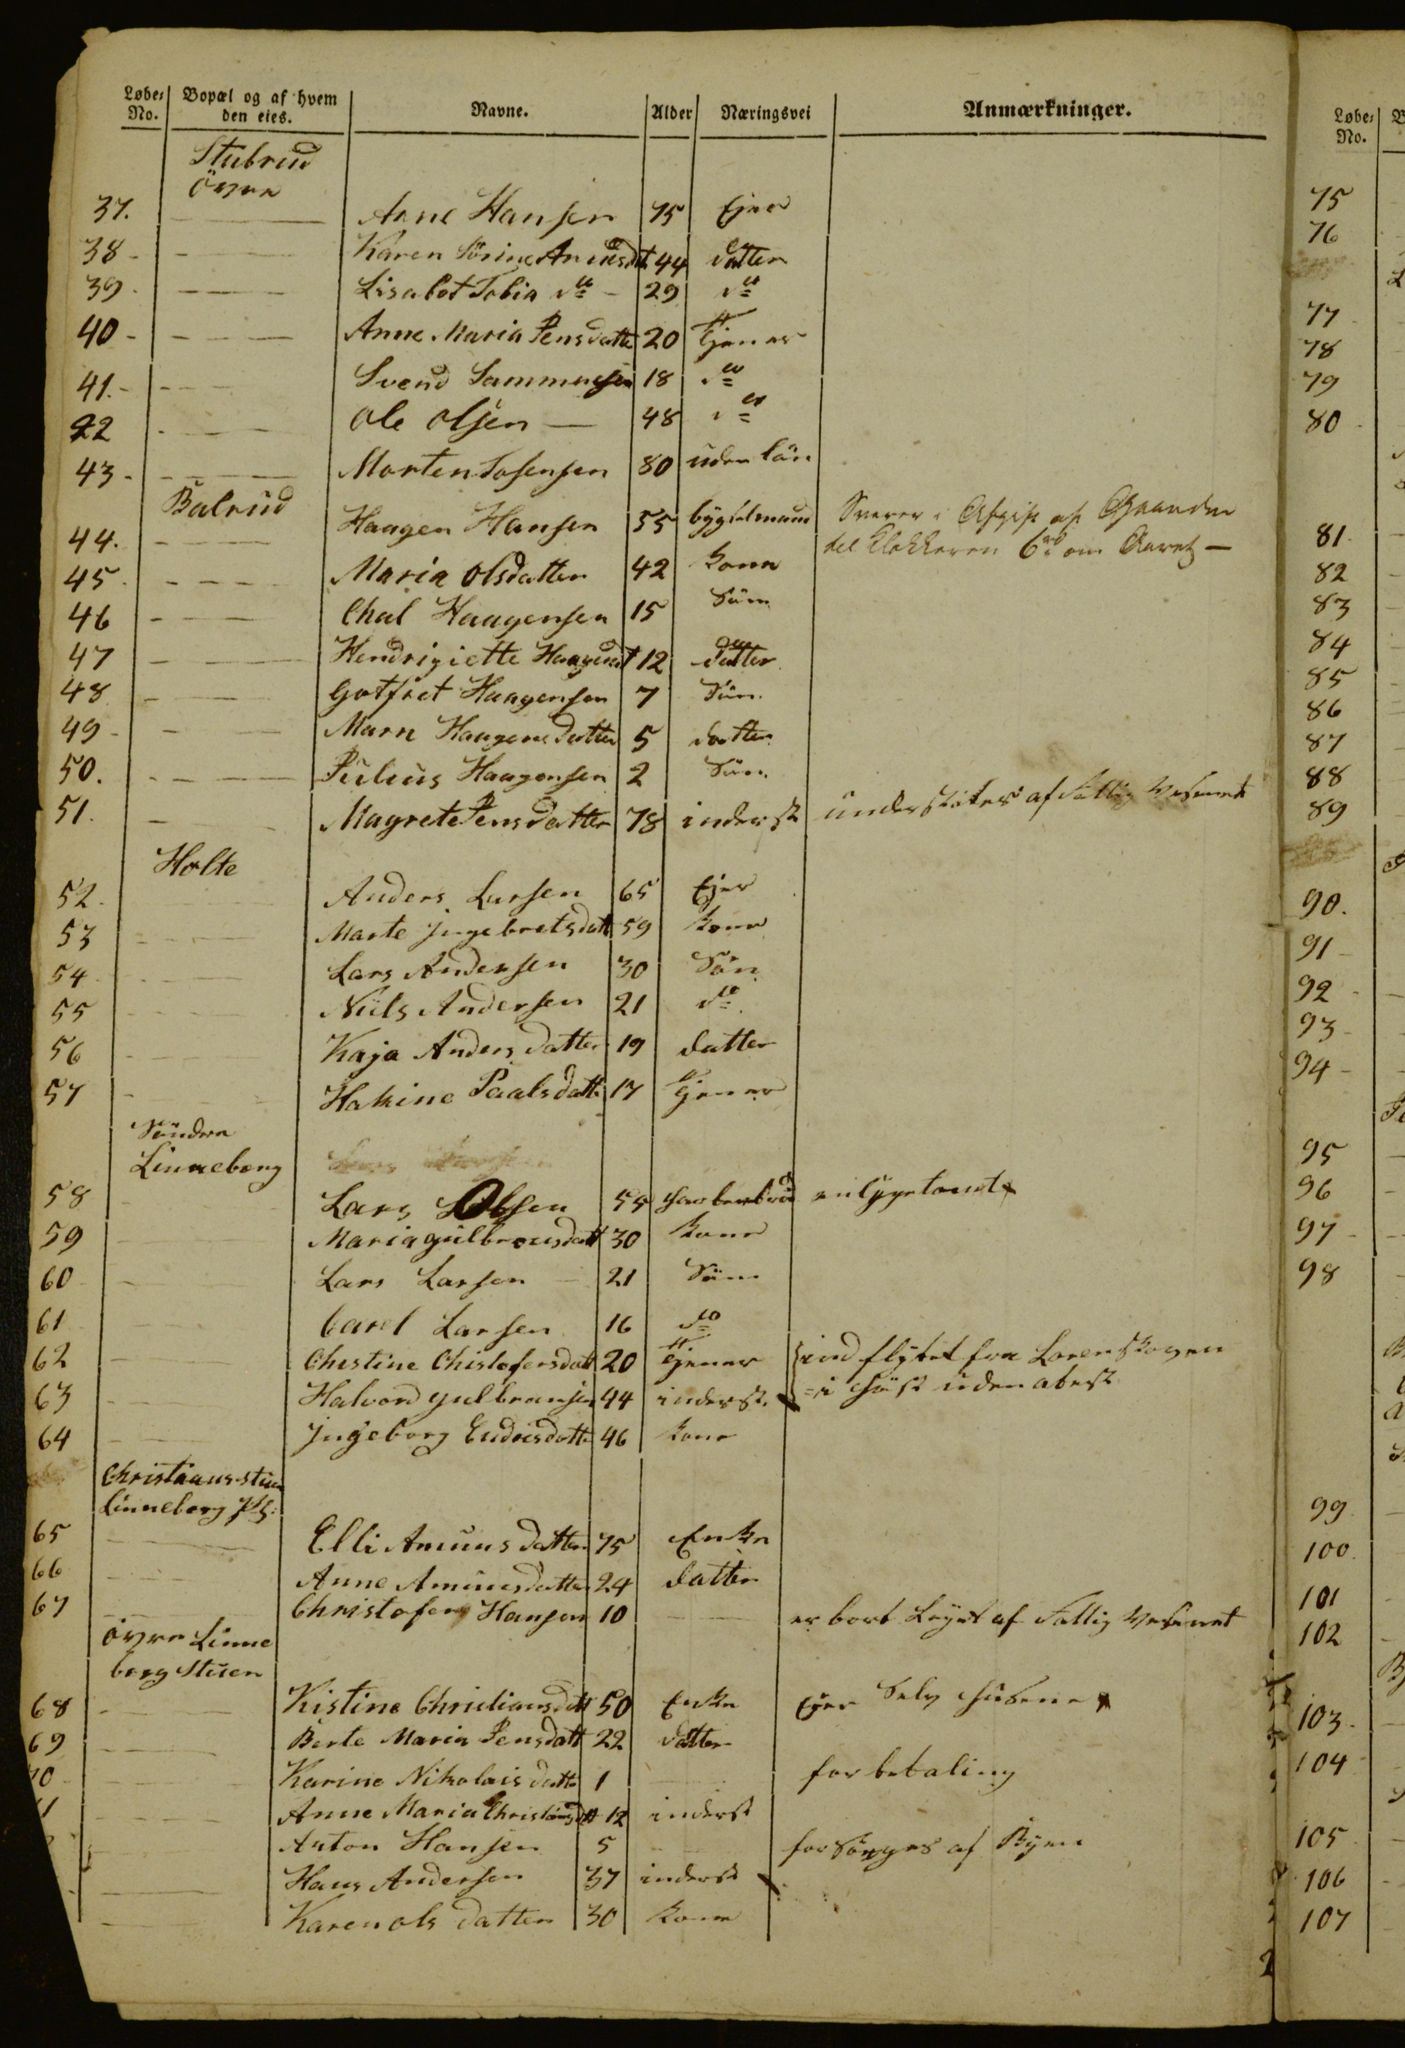 Løbe- No. Bopæl og af hvem den eies. Navne. Alder Næringsvei Anmærkninger.
Stubrud
övre
37. Arne Hansen 75 Ejer
38 - Karen Sörine Arnesdt 44 datter
39 - Lisabet Tobia do - 29 do
40 - Anne Maria Jensdatte 20 Tjener
41. - Svend Sammuelsen 18 do
22 Ole Olsen - 48 do
43 - Morten Tosensen 80 uden lön
Balrud
44. Haagen Hansen 55 bygselmand Svarer i Afgift af Gaarden
til Klokkeren 6 om Aaret -
45 - Maria Olsdatter 42 kone
46 Chal Haagensen 15 Sön
47 Hendrigiette Haagensdt 12 datter
48 Gotfret Haagensen 7 Sön
49 - Marn Haagensdatter 5 datter
50. Julius Haagensen 2 Sön
51. Magrete Jensdatter 78 inderst understötes af Fattig Vesenet
Holte
52. Anders Larsen 65 Ejer
53 Marte Jngebretsdatt 59 kone
54 Lars Andersen 30 Sön
55 Niels Andersen 21 do
56 Kaja Andersdatter 19 datter
57 Hakine Paalsdatte 17 Tjener
Söndre
Linneberg
58 Lars Olsen 55 enlygetomt
59 Maria gulbransdatt 30 kone
60 Lars Larsen - 21 Sön
61 Carel Larsen 16 do
62 Chestine Chistofersdatt 20 Tjener indflytet fra Lorenskogen
63 Halvord gulbransen 44 inderst i höst uden abest
64 Jngeborg Endrisdatte 46 kone
Christiansstuen
Linneberg pls:
65 Elli Amunsdatter 75 Enke
66 Anne Amunsdatter 24 datter
67 Christofer Hansen 10 er bort Leyet af Fattig Vesenet
övre Linne
berg Stuen
68 - Kistine Christiansdatt 50 Enke Ejer Selv Husene
69 Berte Maria Jensdatt 22 datter
70 Karine Nikolaisdatte 1 for betaling
1 Anne Maria Christiansdatt 12 inderst
Anton Hansen 5 forsörges af Byen
Hans Andersen 37 inderst
Karen olsdatter 30 kone
Løbe- No.
75
76
77
78
79
80
81
82
83
84
85
86
87
88
89
90.
91
92
93
94
95
96
97
98
99
100
101
102
103
104
105
106
107